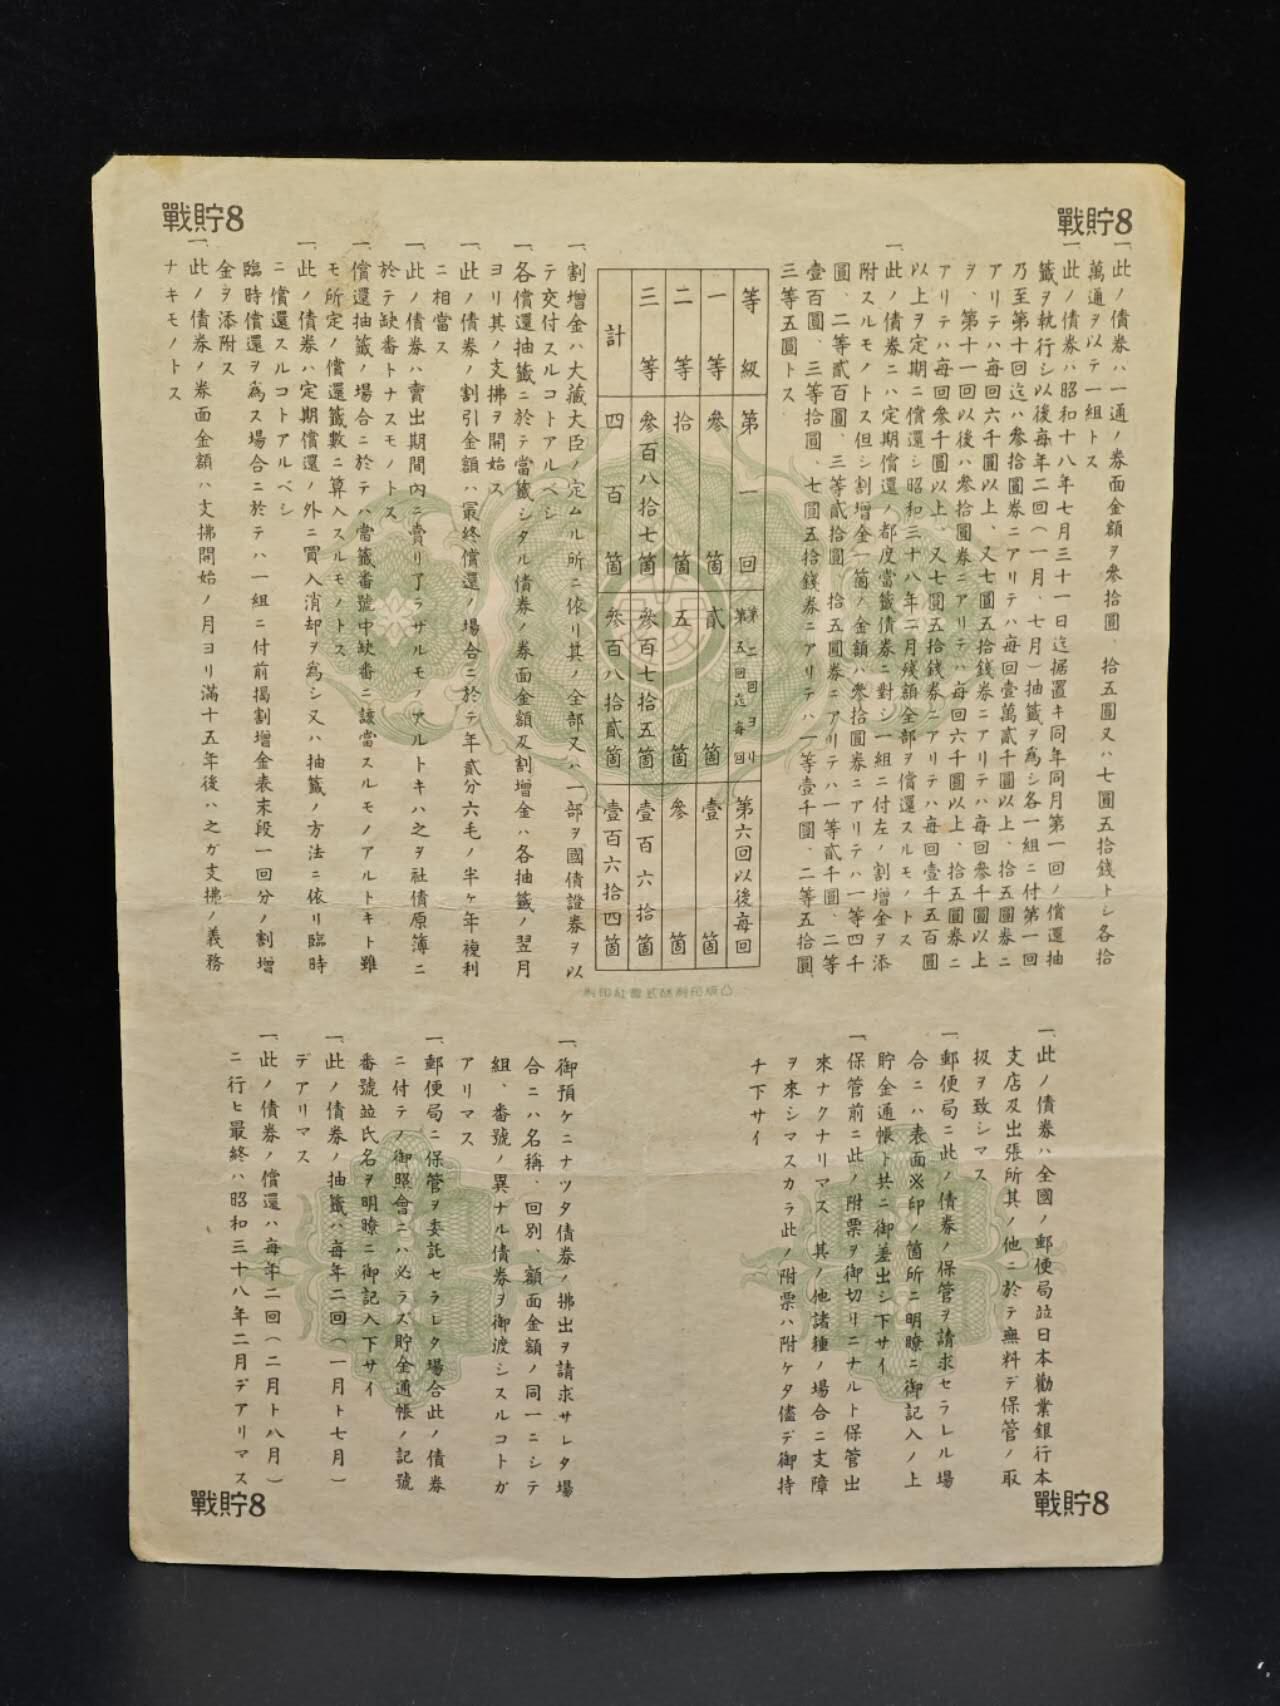 戰貯8
戰貯8
一、此ノ債券ハ一通ノ券面金額ヲ參拾圓、拾五圓又ハ七圓五拾錢トシ各拾
萬通ヲ以テ一組トス
一、此ノ債券ハ昭和十八年七月三十一日迄据置キ同年同月第一回ノ償還抽
籤ヲ執行シ以後每年二回(一月、七月)抽籤ヲ爲シ各一組ニ付第一回
乃至第十回迄ハ參拾圓券ニアリテハ每回壹萬貳千圓以上、拾五圓券ニ
アリテハ每回六千圓以上、又七圓五拾錢券ニアリテハ每回參千圓以上
ヲ、第十一回以後ハ參拾圓券ニアリテハ每回六千圓以上、拾五圓券ニ
アリテハ每回參千圓以上、又七圓五拾錢券ニアリテハ每回壹千五百圓
以上ヲ定期ニ償還シ昭和三十八年二月殘額全部ヲ償還スルモノトス
一、此ノ債券ニハ定期償還ノ都度當籤債券ニ對シ一組ニ付左ノ割增金ヲ添
附スルモノトス但シ割增金一箇ノ金額ハ參拾圓券ニアリテハ一等四千
圓、二等貳百圓、三等貳拾圓、拾五圓券ニアリテハ一等貳千圓、二等
壹百圓、三等拾圓、七圓五拾錢券ニアリテハ一等壹千圓、二等五拾圓、
三等五圓トス
等級 第一回 第二回ヨリ第五回迄每回 第六回以後每回
一等 參箇 貳箇 壹箇
二等 拾箇 五箇 參箇
三等 參百八拾七箇 參百七拾五箇 壹百六拾箇
計 四百箇 參百八拾貳箇 壹百六拾四箇
一、割增金ハ大藏大臣ノ定ムル所ニ依リ其ノ全部又ハ一部ヲ國債證券ヲ以
テ交付スルコトアルベシ
一、各償還抽籤ニ於テ當籤シタル債券ノ券面金額及割增金ハ各抽籤ノ翌月
ヨリ其ノ支拂ヲ開始ス
一、此ノ債券ノ割引金額ハ最終償還ノ場合ニ於テ年貳分六毛ノ半ヶ年複利
ニ相當ス
一、此ノ債券ハ賣出期間內ニ賣リ了ラザルモノアルトキハ之ヲ社債原簿ニ
於テ缺番トナスモノトス
一、償還抽籤ノ場合ニ於テハ當籤番號中缺番ニ該當スルモノアルトキト雖
モ所定ノ償還籤數ニ算入スルモノトス
一、此ノ債券ハ定期償還ノ外ニ買入消却ヲ爲シ又ハ抽籤ノ方法ニ依リ臨時
ニ償還スルコトアルベシ
臨時償還ヲ爲ス場合ニ於テハ一組ニ付前揭割增金表末段一回分ノ割增
金ヲ添附ス
一、此ノ債券ノ券面金額ハ支拂開始ノ月ヨリ滿十五年後ハ之ガ支拂ノ義務
ナキモノトス
凸版印刷株式會社印刷
一、此ノ債券ハ全國ノ郵便局竝日本勸業銀行本
支店及出張所其ノ他ニ於テ無料デ保管ノ取
扱ヲ致シマス
一、郵便局ニ此ノ債券ノ保管ヲ請求セラレル場
合ニハ表面※印ノ箇所ニ明瞭ニ御記入ノ上
貯金通帳ト共ニ御差出シ下サイ
一、保管前ニ此ノ附票ヲ御切リニナルト保管出
來ナクナリマス 其ノ他諸種ノ場合ニ支障
ヲ來シマスカラ此ノ附票ハ附ケタ儘デ御持
チ下サイ
一、御預ケニナツタ債券ノ拂出ヲ請求サレタ場
合ニハ名稱、回別、額面金額ノ同一ニシテ
組、番號ノ異ナル債券ヲ御渡シスルコトガ
アリマス
一、郵便局ニ保管ヲ委託セラレタ場合此ノ債券
ニ付テノ御照會ニハ必ラズ貯金通帳ノ記號
番號竝氏名ヲ明瞭ニ御記入下サイ
一、此ノ債券ノ抽籤ハ每年二回(一月ト七月)
デアリマス
一、此ノ債券ノ償還ハ每年二回(二月ト八月)
ニ行ヒ最終ハ昭和三十八年二月デアリマス
戰貯8
戰貯8